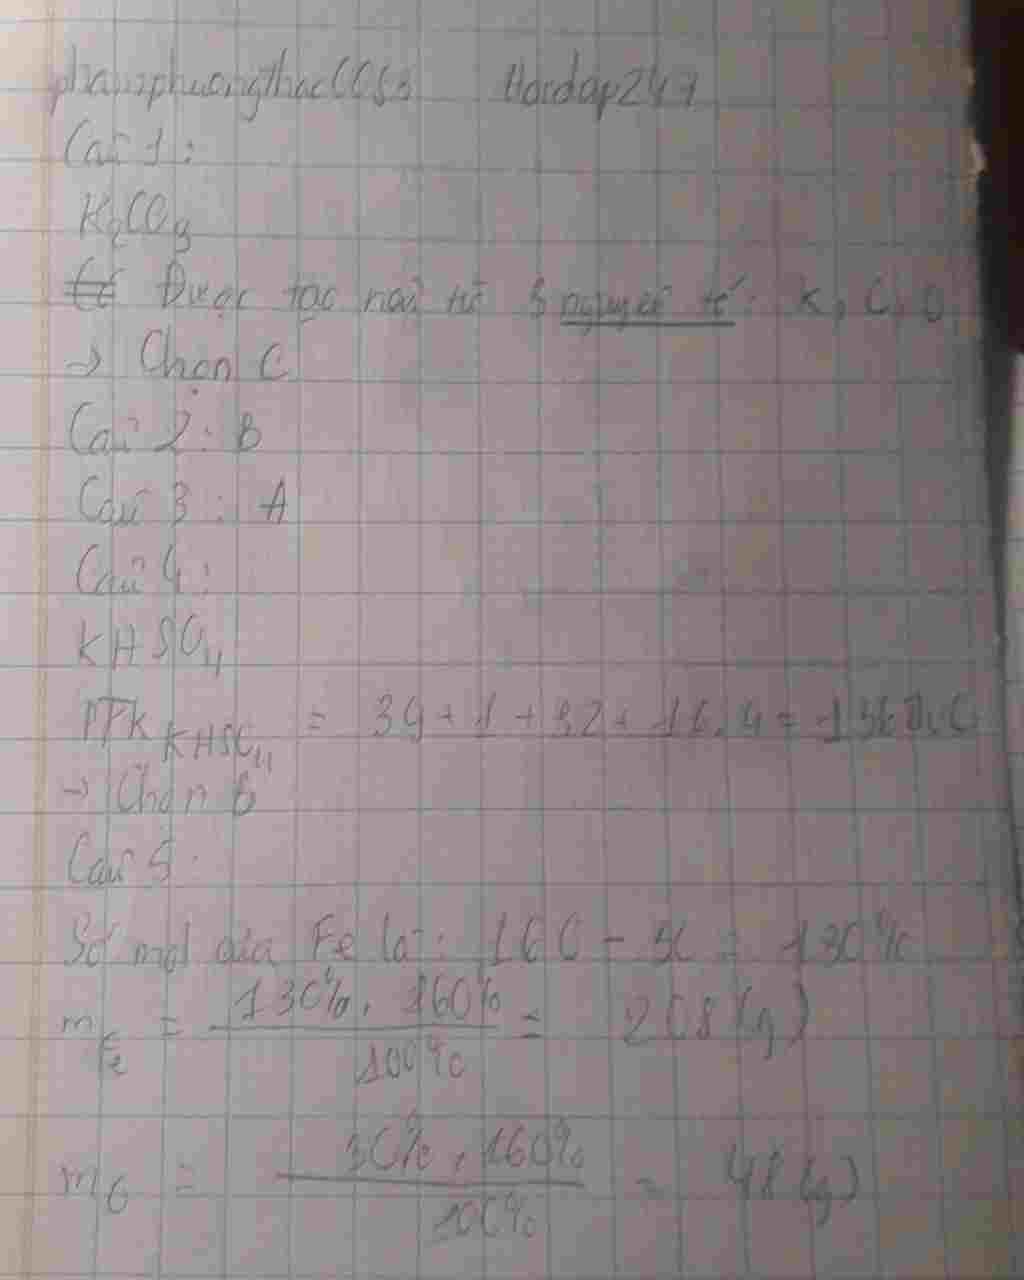 Hoidap247
Câu 1:
K₂CO₃
Được tạc naũ từ 3 nguyên tố: K, C, O
→ Chọn C
Câu 2: B
Câu 3: A
Câu 4:
KHSO₄
PTK KHSO₄ = 39 + 1 + 32 + 16.4 = 136 đvC
→ Chọn B
Câu 5:
Số mol của Fe là: 160 - 30 = 130%
m Fe = 130% . 160% / 100% = 208 (g)
m O = 30% . 160% / 100% = 48 (g)